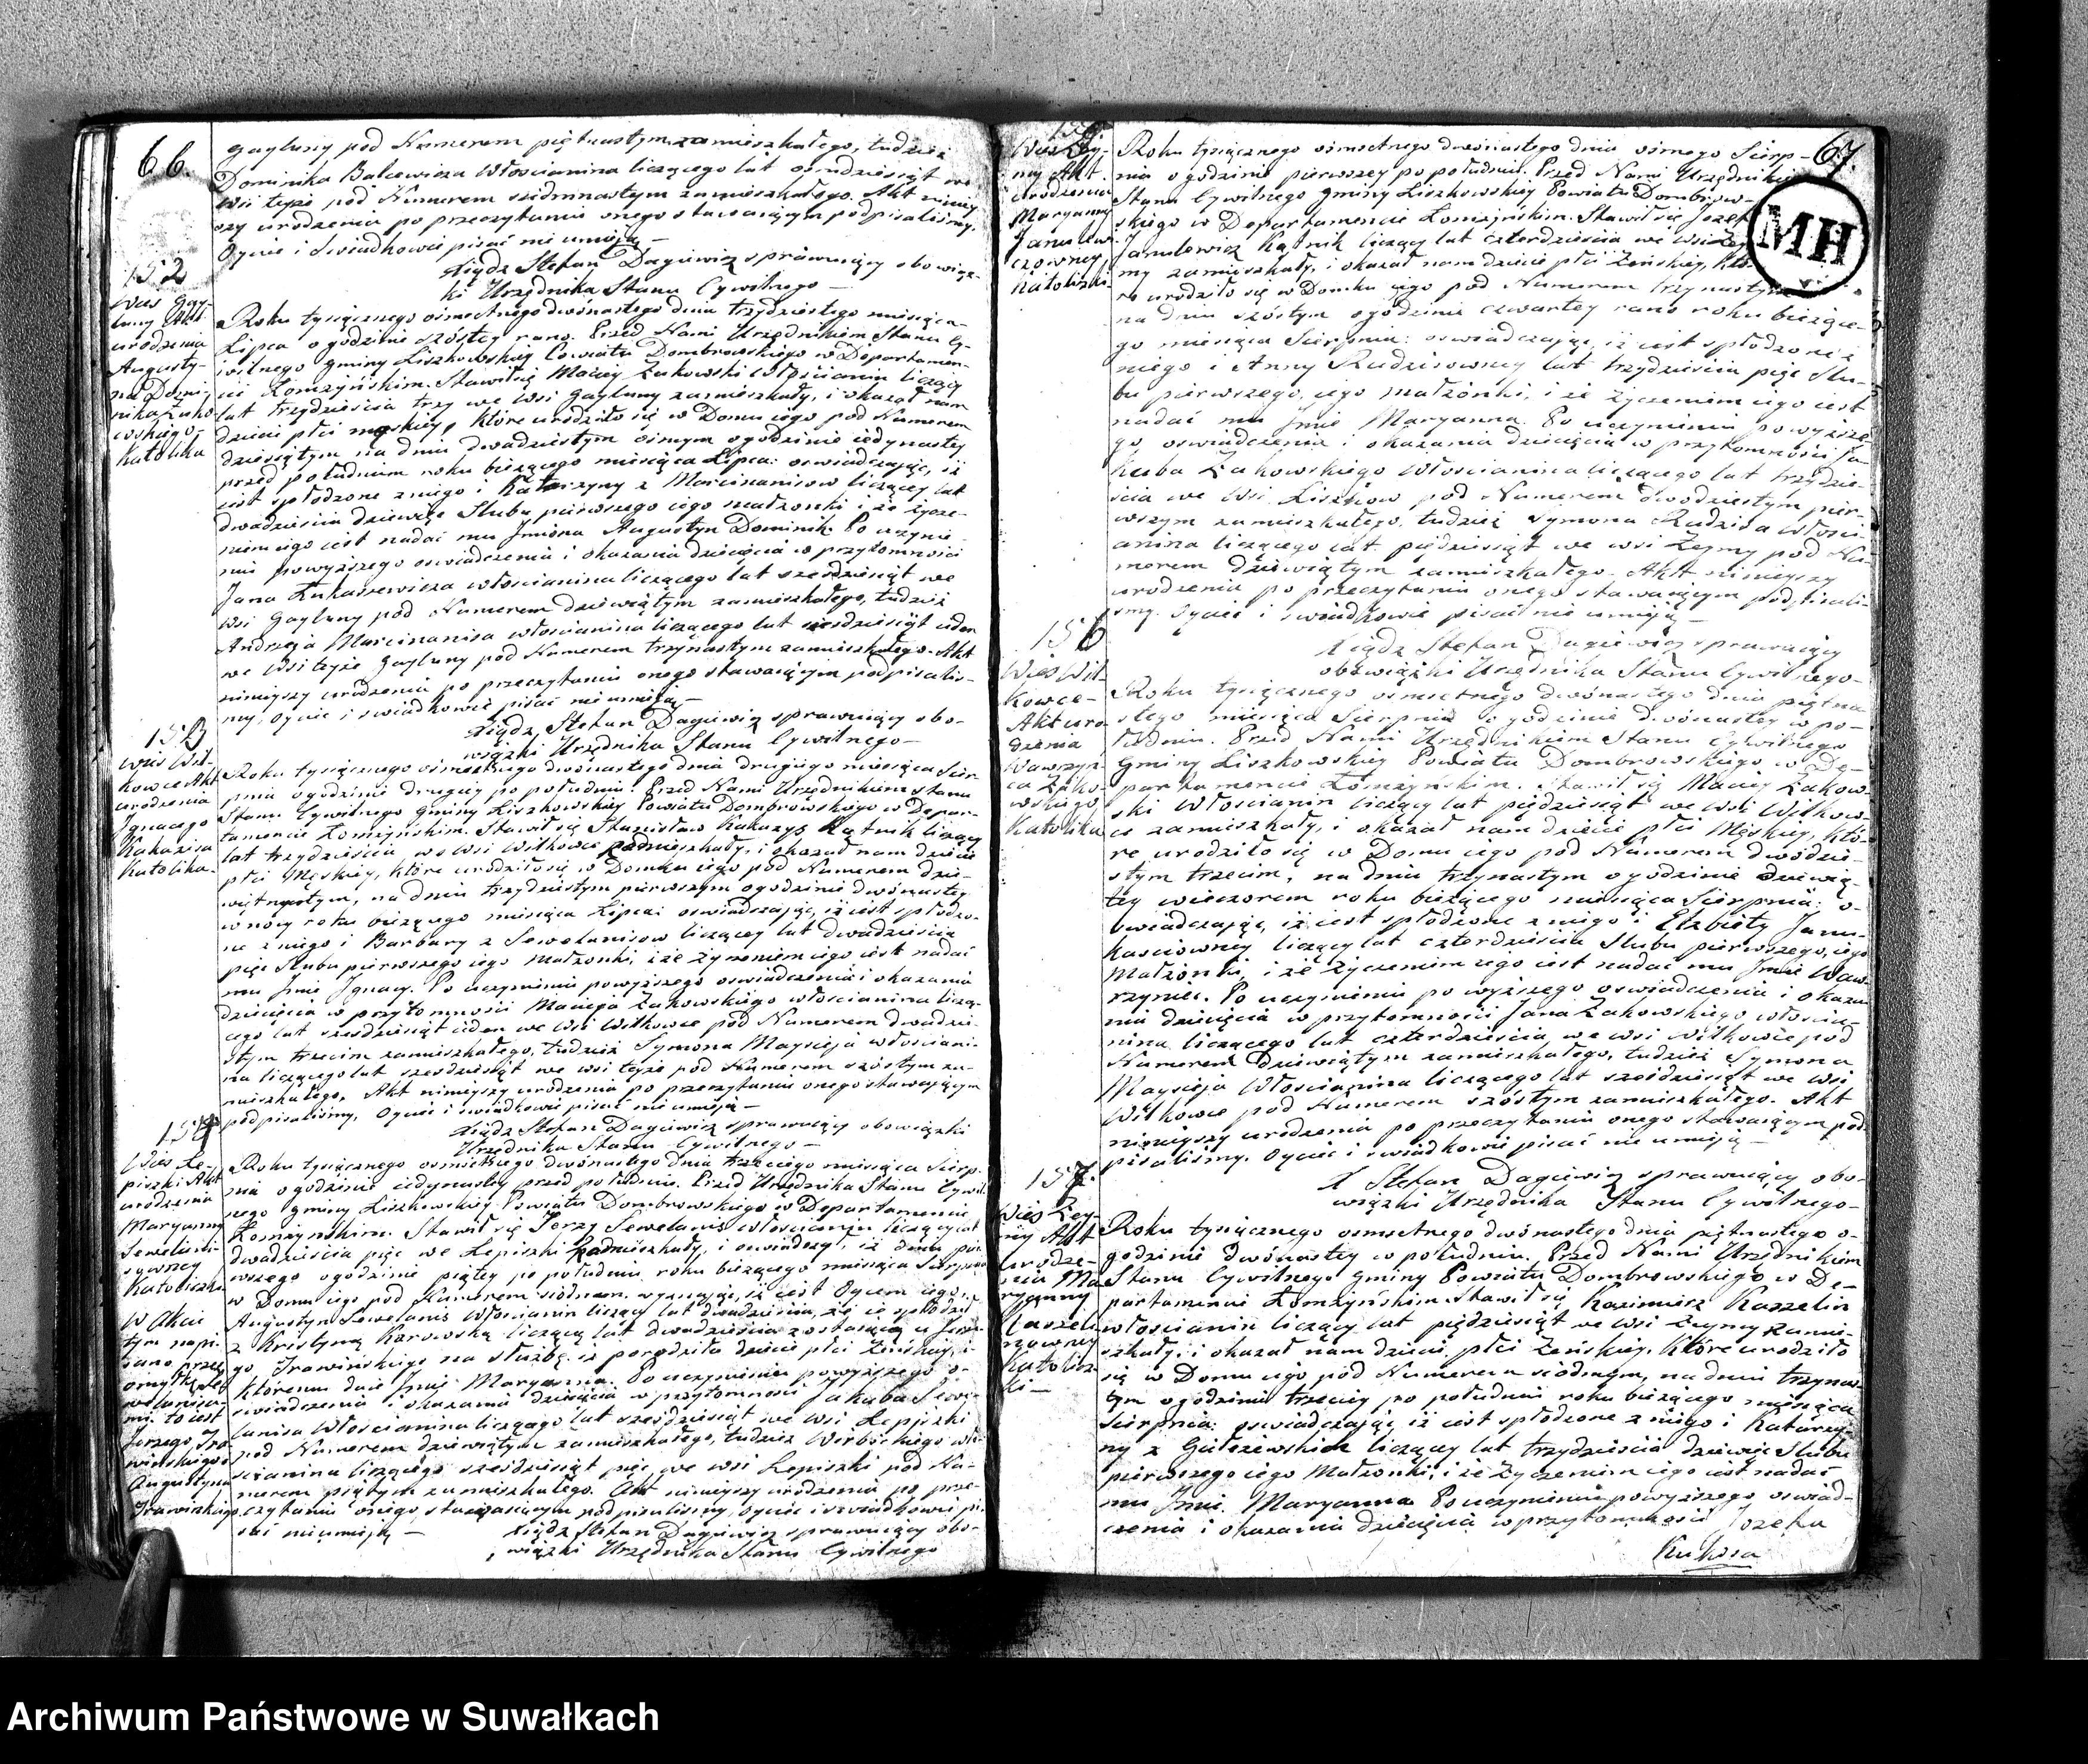 66.
gayluny pod Numerem piętnastym zamieszkałego, tudzież
Dominika Balcewicza Włościanina liczącego lat ośmdziesiąt we
wsi teyże pod Numerem siedmnastym zamieszkałego. Akt niniey
szy urodzenia po przeczytaniu onego stawaiącym podpisaliśmy.
Oyciec i świadkowie pisać nie umieją —
Xiądz Stefan Dagiewicz sprawuiący obowiąz-
ki Urzędnika Stanu Cywilnego —
152
Wieś Gay-
luny Akt
urodzenia
Augusty-
na Domi-
nika Żuko
wskiego-
Katolika
Roku tysiącznego ośmsetnego dwónastego dnia trzydziestego miesiąca
Lipca o godzinie szóstey rano. Przed Nami Urzędnikiem Stanu Cy-
wilnego gminy Liszkowskiey Powiatu Dombrowskiego w Departamen-
cie Łomzyńskim. Stawił się Maciey Żukowski Włościanin liczący
lat trzydzieścia trzy we wsi Gayluny zamieszkały, i okazał nam
dziecie płci męskiey, które urodziło się w Domu iego pod Numerem
dziesiątym na dniu dwudziestym ósmym o godzinie iedynastey
przed południem roku bieżącego miesiąca Lipca: oświadczaiąc, iż
iest spłodzone z niego i Katarzyny z Marcinanisow liczącey lat
dwadzieścia dziewięć Slubu pierwszego iego małżonki i że życze-
niem iego iest nadać mu Jmiona Augustyn Dominik. Po uczynie-
niu powyższego oświadczenia i okazania dziecięcia w przytomności
Jana Łukaszewicza włościanina liczącego lat sześdziesiąt we
wsi Gayluny pod Numerem dziewiątym zamieszkałego, tudzież
Andrzeja Marcinanisa włościanina liczącego lat sześdziesiąt ieden
we wsi teyże Gayluny pod Numerem trzynastym zamieszkałego. Akt
ninieyszy urodzenia po przeczytaniu onego stawaiącym podpisaliś-
my, oyciec i świadkowie pisać nie umieją —
Xiądz Stefan Dagiewicz sprawuiący obo-
wiązki Urzędnika Stanu Cywilnego —
153
Wieś Wił-
kowce Akt
urodzenia
Ignacego
Kukazisa
Katolika.
Roku tysiącznego ośmsetnego dwónastego dnia drugiego miesiąca Sier
pnia o godzinie drugiey po południu. Przed Nami Urzędnikiem stanu
Stanu Cywilnego gminy Liszkowskiey Powiatu Dombrowskiego w Depar-
tamencie Łomzyńskim. Stawił się Stanisław Kukuzys Kątnik liczący
lat trzydzieścia we wsi Wiłkowce zamieszkały, i okazał nam dziecie
płci Męskiey, które urodziło się w Domku iego pod Numerem dzie-
więtnastym, na dniu trzydziestym pierwszym o godzinie dwónastey
w nocy roku bieżącego miesiąca Lipca: oświadczaiąc, iż iest spłodzo-
ne z niego i Barbary z Sewelanisow liczącey lat dwadzieścia
pięć Slubu pierwszego iego małżonki, i że życzeniem iego iest nadać
mu Jmie Ignacy. Po uczynieniu powyższego oświadczenia i okazania
dziecięcia w przytomności Macieja Żukowskiego włościanina liczą-
cego lat sześdziesiąt ieden we wsi Wiłkowce pod Numerem dwudzie-
stym trzecim zamieszkałego, tudzież Symona Maysieja włościani-
na liczącego lat sześdziesiąt we wsi teyże pod Numerem szóstym za-
mieszkałego, Akt ninieyszy urodzenia po przeczytaniu onego stawaiącym
podpisaliśmy, Oyciec i świadkowie pisać nie umieją —
Xiądz Stefan Dagiewicz sprawuiący obowiązki
Urzędnika Stanu Cywilnego —
154
Wieś Łe-
piszki Akt
urodzenia
Maryanny
Sewelani-
sowney
Katoliczki
W Akcie
tym napi-
sano przez
omyłkę Se
welanisa-
mi to iest
Jerzego Jro
wińskiego
Augustyna
Jrawińskiego
Roku tysiącznego ośmsetnego dwónastego dnia trzeciego miesiąca Sierp-
nia o godzinie iedynastey przed południem. Przed Urzędnika Stanu Cywil-
nego gminy Liszkowskiey Powiatu Dombrowskiego w Departamencie
Łomzyńskim. Stawił się Jerzy Sewelanis włościanin liczący lat
dwadzieścia pięć we Łepiszki zamieszkały, i oświadczył, iż dnia pier
wszego o godzinie piątey po południu roku bieżącego miesiąca Sierpnia
w Domu iego pod Numerem siódmem. wyznaiąc, iż iest Oycem iego.
Augustyn Sewelanis Włościanin liczący lat dwadzieścia, że ie spłodził
z Krystyną Karowską liczącą lat dwadzieścia zostaiącą u Jerze-
go Jrawińskiego na służbę. iż porodziła dziecie płci Żeńskiey, i
któremu daie Jmie Maryanna. Po uczynieniu powyższego o-
świadczenia i okazania dziecięcia w przytomności Jakuba Sewe-
lanisa Włościanina liczącego lat sześdziesiąt we wsi Łepiszki
pod Numerem dziewiątym zamieszkałego, tudzież Wierbickiego wło-
ścianina liczącego sześdziesiąt pięć we wsi Łepiszki pod Nu-
merem piątym zamieszkałego. Akt ninieyszy urodzenia po prze-
czytaniu onego stawaiącym podpisaliśmy, oyciec i świadkowie pi-
sać nie umieją —
Xiądz Stefan Dagiewicz sprawuiący obo-
wiązki Urzędnika Stanu Cywilnego
67.
MH
155
Wieś Żey-
my Akt
urodzenia
Maryanny
Janulewi-
czowney
Katoliczki
Roku tysiącznego ośmsetnego dwónastego dnia ósmego Sierp-
nia o godzinie pierwszey po południu. Przed Nami Urzędnikiem
Stanu Cywilnego gminy Liszkowskiey Powiatu Dombrow-
skiego w Departamencie Łomzyńskim. Stawił się Jozef
Janulewicz Kątnik liczący lat czterdzieścia we wsi Żey
my zamieszkały, i okazał nam dziecie płci Żeńskiey, któ-
re urodziło się w Domku iego pod Numerem trzynastym
na dniu szóstym o godzinie czwartey rano roku bieżące-
go miesiąca Sierpnia: oświadczaiąc, iż iest spłodzone z
niego i Anny Rudzisowney lat trzydzieścia pięć Slu-
bu pierwszego, iego małżonki, i że życzeniem iego iest
nadać mu Jmie Maryanna. Po uczynieniu powyższe
go oświadczenia i okazania dziecięcia w przytomności Ja-
kuba Żukowskiego Włościanina liczącego lat trzydzie-
ścia we wsi Liszkow pod Numerem dwódziestym pier-
wszym zamieszkałego, tudzież Symona Rudzisa Włości-
anina liczącego lat piędziesiąt we wsi Żeymy pod Nu-
merem dziewiątym zamieszkałego. Akt ninieyszy
urodzenia po przeczytaniu onego stawaiącym podpisali-
śmy. Oyciec i świadkowie pisać nie umieją —
Xiądz Stefan Dagiewicz sprawuiący
obowiązki Urzędnika Stanu Cywilnego-
156
Wieś Wił-
kowce-
Akt uro-
dzenia
Wawrzyń
ca Żuko-
wskiego
Katolika
Roku tysiącznego ośmsetnego dwónastego dnia piętna
stego miesiąca Sierpnia o godzinie dwónastey w po-
łudniu. Przed Nami Urzędnikiem Stanu Cywilnego
Gminy Liszkowskiey Powiatu Dombrowskiego w De-
partamencie Łomzyńskim. Stawił się Maciey Żukow-
ski Włościanin liczący lat piędziesiąt we wsi Wiłkow-
ce zamieszkały, i okazał nam dziecie płci Męskiey, któ-
re urodziło się w Domu iego pod Numerem dwódzie-
stym trzecim, na dniu trzynastym o godzinie dziewią-
tey wieczorem roku bieżącego miesiąca Sierpnia: o-
świadczaiąc, iż iest spłodzone z niego i Elżbiety Janu-
kasciowney liczącey lat czterdzieścia Slubu pierwszego, iego
Małżonki, i że życzeniem iego iest nadać mu Jmie Waw-
rzyniec. Po uczynieniu powyższego oświadczenia i okaza
niu dziecięcia w przytomności Jana Żukowskiego włościa-
nina liczącego lat czterdzieścia, we wsi Wiłkowce pod
Numerem Dziewiątym zamieszkałego, tudzież Symona
Maysieja Włościanina liczącego lat sześdziesiąt we wsi
Wiłkowce pod Numerem szóstym zamieszkałego. Akt
ninieyszy urodzenia po przeczytaniu onego stawaiącym pod-
pisaliśmy. Oyciec i świadkowie pisać nie umieją —
X Stefan Dagiewicz sprawuiący obo-
wiązki Urzędnika Stanu Cywilnego-
157.
Wieś Żey-
my Akt
urodze-
nia Ma
ryanny
Kaszeli
nowney
Katolicz-
ki —
Roku tysiącznego ośmsetnego dwónastego dnia piętnastego o-
godzinie dwónastey w południu. Przed Nami Urzędnikiem
Stanu Cywilnego gminy Powiatu Dombrowskiego w De-
partamencie Łomżyńskim Stawił się Kazimierz Kaszelin
włościanin liczący lat piędziesiąt we wsi Żeymy zamie-
szkały, i okazał nam dziecie płci Żeńskiey, Które urodziło
się w Domu iego pod Numerem siódmym, na dniu trzynas-
tym o godzinie trzeciey po południu roku bieżącego miesiąca
Sierpnia: oświadczaiąc iż iest spłodzone z niego i Katarzy-
ny z Gulczewskich liczącey lat trzydzieścia dziewięć Slubu
pierwszego iego Małżonki, i że życzeniem iego iest nadać
mu Jmie Maryanna Po uczynieniu powyższego oświad-
czenia i okazania dziecięcia w przytomności Jozefa
Kuksza
Archiwum Państwowe w Suwałkach